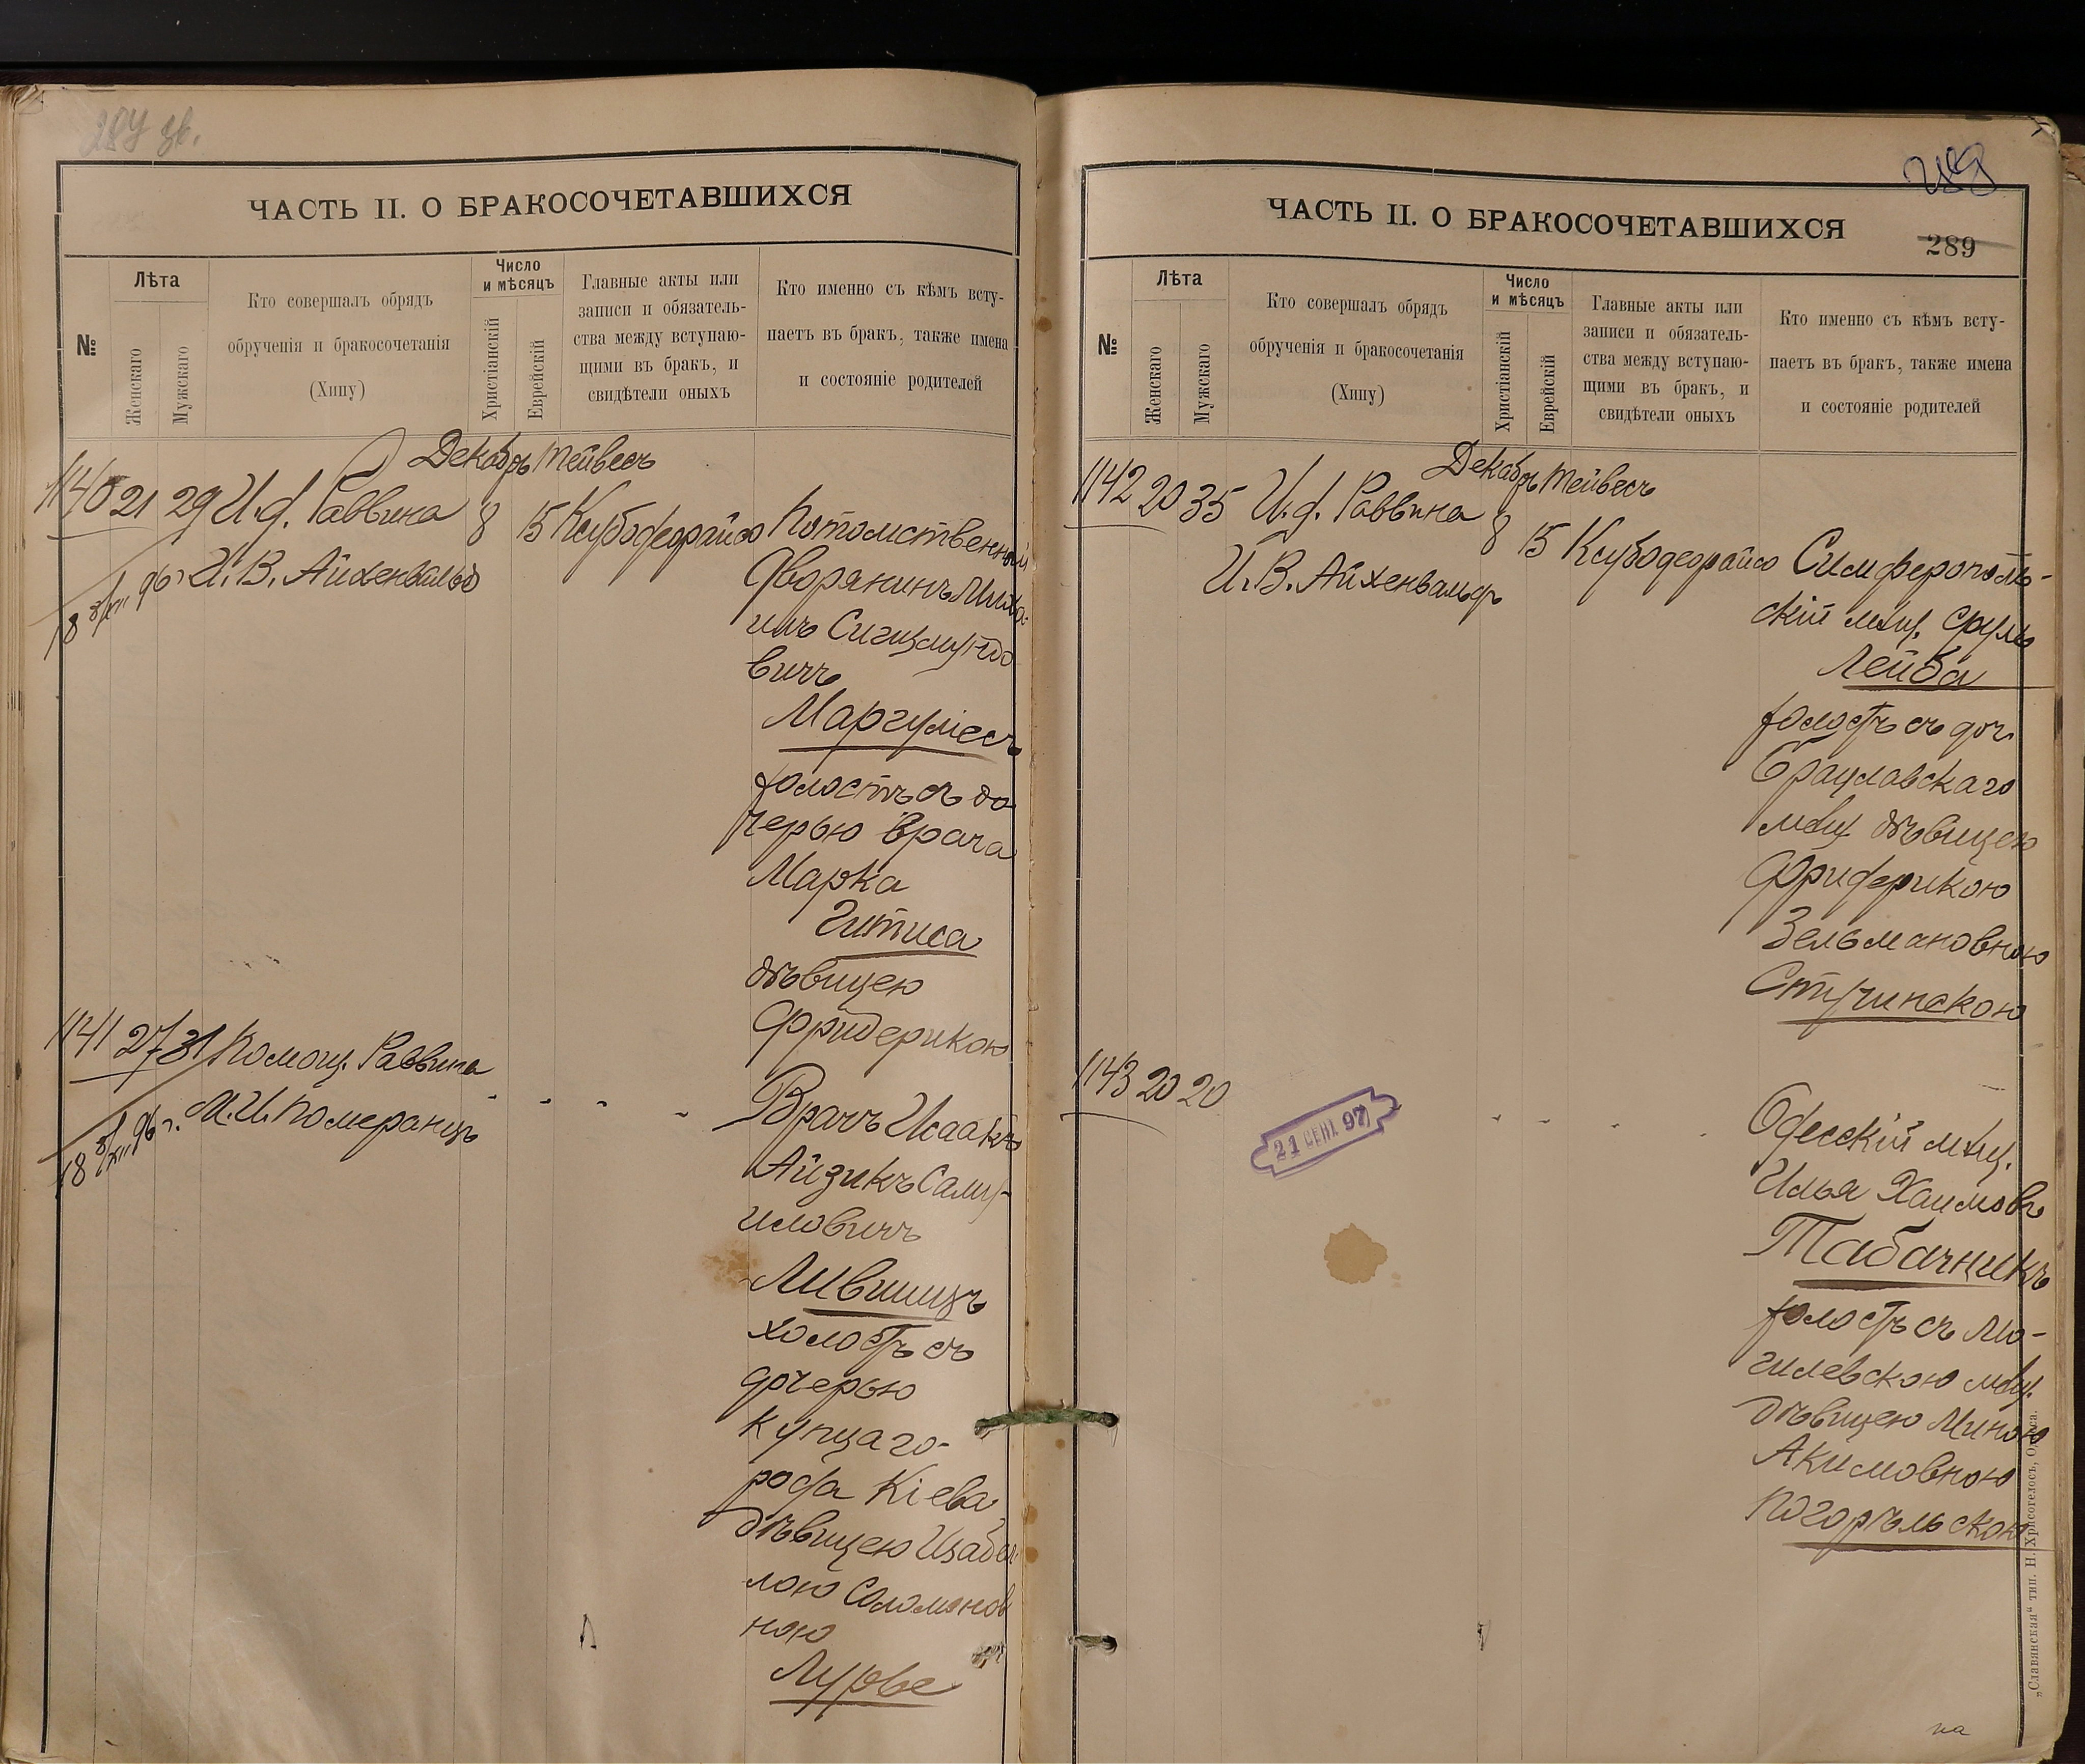 ЧАСТЬ II. О БРАКОСОЧЕТАВШИХСЯ
№
Лѣта
Женскаго
Мужскаго
Кто совершалъ обрядъ
обрученія и бракосочетанія
(Хипу)
Число
и мѣсяцъ
Христіанскій
Еврейскій
Главные акты или
записи и обязатель-
ства между вступаю-
щими въ бракъ, и
свидѣтели оныхъ
Кто именно съ кѣмъ всту-
паетъ въ бракъ, также имена
и состояніе родителей
Декабрь Тейвесъ
1140 21 29 И. д. Раввина 8 15 Ксубодеорайсо Потомственный
18 8/XII 96 г. И. В. Айхенвальд
Дворянинъ Миха-
илъ Сигизмундо
вичъ
Маргуліесъ
холостъ съ до
черью врача
Марка
Гитиса
дѣвицею
Фридерикою
1141 27 31 Помощ. Раввина
18 8/XII 96 г. М. И. Померанцъ
Врачъ Исаакъ
Айзикъ Саму-
иловичъ
Лившицъ
холостъ съ
дочерью
купца го-
рода Кіева,
дѣвицею Изабел
лою Соломонов
ною
Лурье
ЧАСТЬ II. О БРАКОСОЧЕТАВШИХСЯ
289
№
Лѣта
Женскаго
Мужскаго
Кто совершалъ обрядъ
обрученія и бракосочетанія
(Хипу)
Число
и мѣсяцъ
Христіанскій
Еврейскій
Главные акты или
записи и обязатель-
ства между вступаю-
щими въ бракъ, и
свидѣтели оныхъ
Кто именно съ кѣмъ всту-
паетъ въ бракъ, также имена
и состояніе родителей
Декабрь Тейвесъ
1142 20 35 И. д. Раввина 8 15 Ксубодеорайсо Симферополь-
И. В. Айхенвальд
скій мѣщ. Сруль
Лейба
холостъ съ доч.
Брацлавскаго
мѣщ дѣвицею
Фридерикою
Зельмановною
Стучинскою
1143 20 20
21 СЕНТ. 97
Одесскій мѣщ.
Илья Хаимовъ
Табачникъ
холостъ съ Мо-
гилевскою мѣщ.
дѣвицею Миною
Акимовною
Погорѣльскою
„Славянская“ тип. Н. Хрисогелосъ, Одесса.